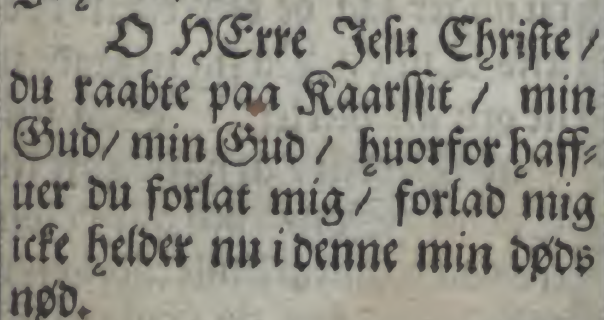 O HErre Jesu Christe /
du raabte paa Kaarssit / min
Gud/ min Gud / huorfor haff⸗
uer du forlat mig / forlad mig
icke helder nu i denne min døds
nød.